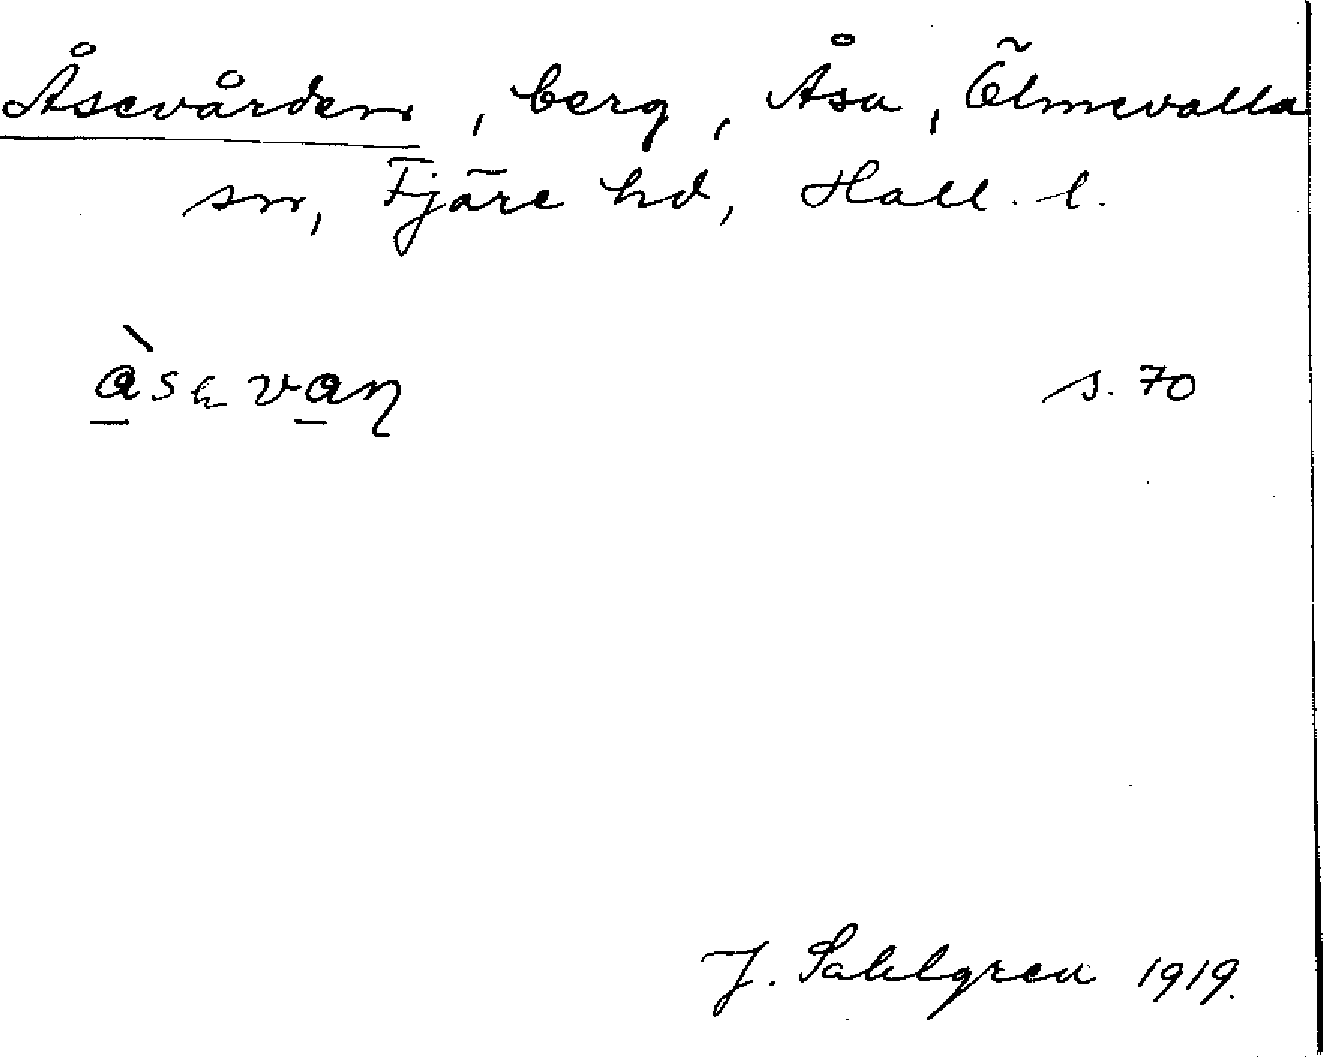 Åsevården, berg, Åsa, Ölmevalla
sn, Fjäre hd, Hall. l.
å̠̀sɐva̠ɳ s. 70
J. Sahlgren 1919.